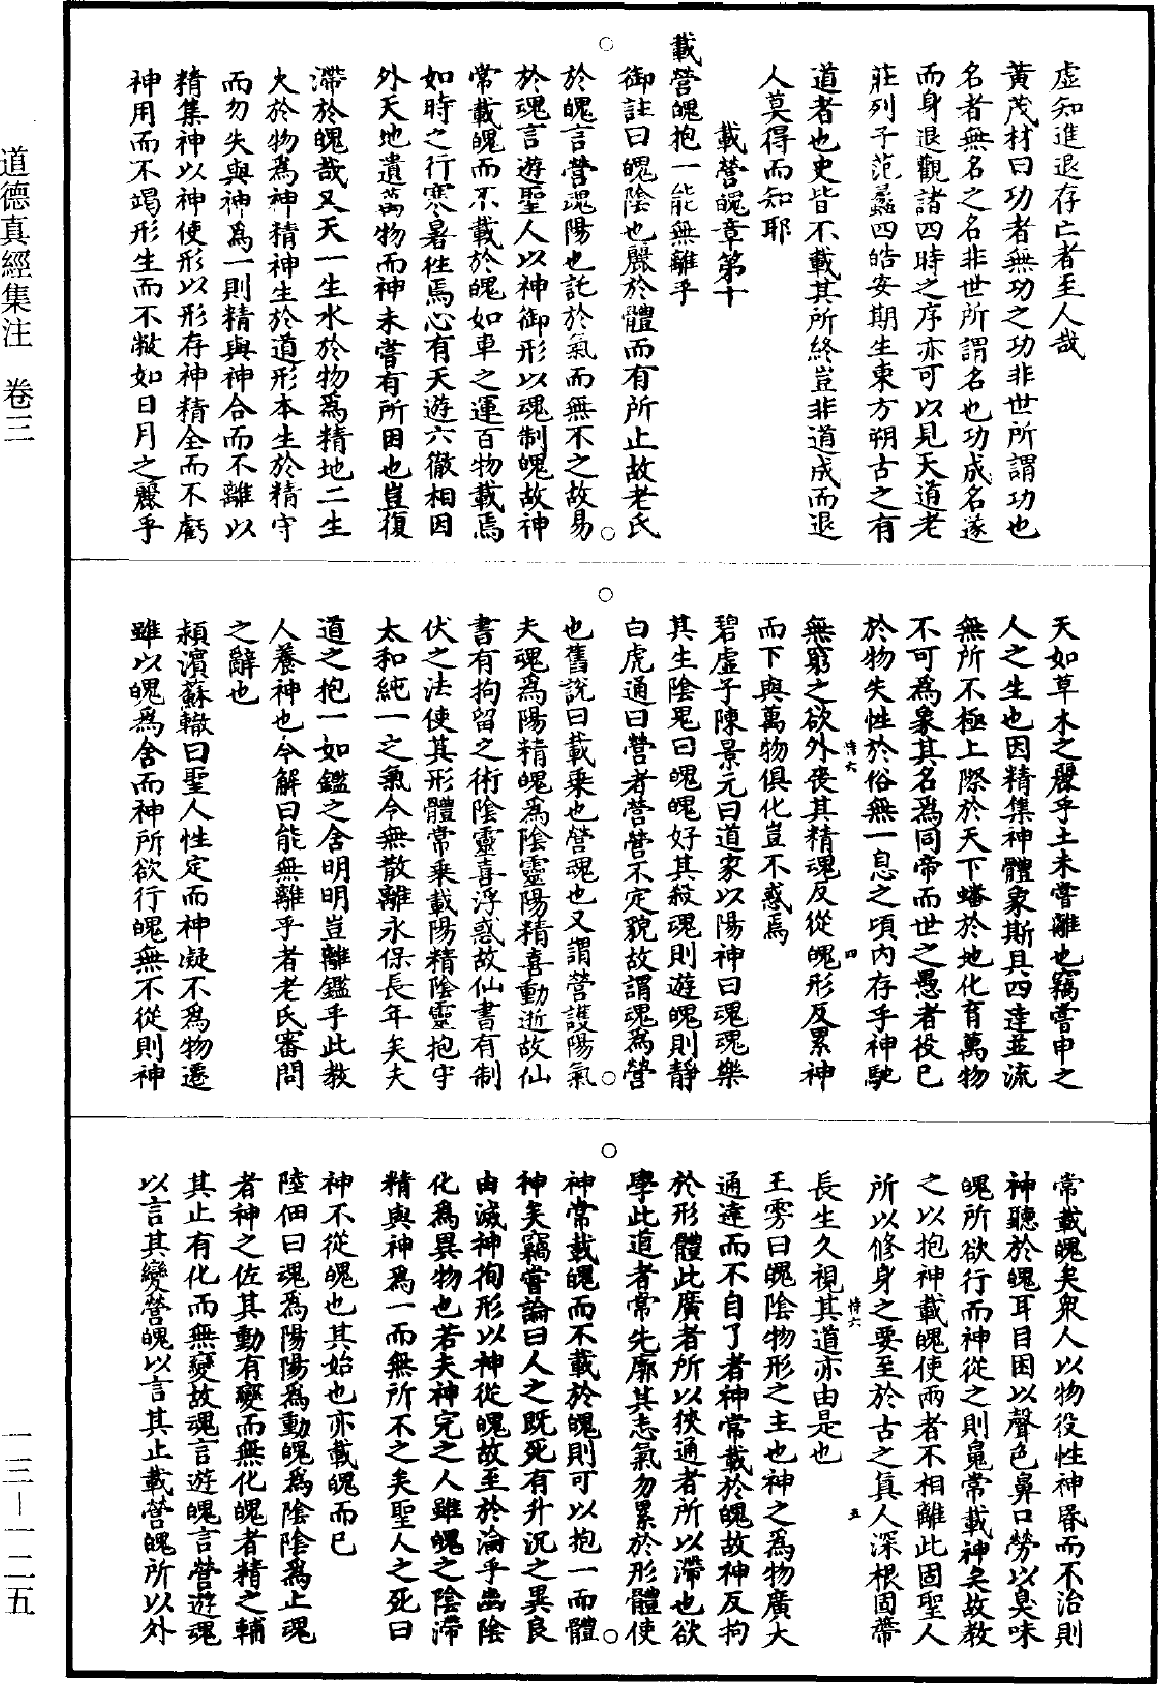 道德真經集注　卷三
一三—一二五
虛知進退存亡者至人哉
黃茂材曰功者無功之功非世所謂功也
名者無名之名非世所謂名也功成名遂
而身退觀諸四時之序亦可以見天道老
莊列子范蠡四皓安期生東方朔古之有
道者也史皆不載其所終豈非道成而退
人莫得而知耶
載營魄章第十
載營魄抱一能無離乎
御註曰魄陰也麗於體而有所止故老氏
於魄言營魂陽也託於氣而無不之故易
於魂言遊聖人以神御形以魂制魄故神
常載魄而不載於魄如車之運百物載焉
如時之行寒暑往焉心有天遊六徹相因
外天地遺萬物而神未嘗有所困也豈復
滯於魄哉又天一生水於物為精地二生
火於物為神精神生於道形本生於精守
而勿失與神為一則精與神合而不離以
精集神以神使形以形存神精全而不虧
神用而不竭形生而不敝如日月之麗乎
天如草木之麗乎土未嘗離也竊嘗申之
人之生也因精集神體象斯具四達並流
無所不極上際於天下蟠於地化育萬物
不可為象其名為同帝而世之愚者役己
於物失性於俗無一息之頃內存乎神馳
無窮之欲外喪其精魂反從魄形反累神
而下與萬物俱化豈不惑焉
碧虛子陳景元曰道家以陽神曰魂魂樂
其生陰鬼曰魄魄好其殺魂則遊魄則靜
白虎通曰營者營營不定貌故謂魂為營
也舊說曰載乘也營魂也又謂營護陽氣
夫魂為陽精魄為陰靈陽精喜動逝故仙
書有拘留之術陰靈喜浮惑故仙書有制
伏之法使其形體常乘載陽精陰靈抱守
太和純一之氣令無散離永保長年矣夫
道之抱一如鑑之舍明明豈離鑑乎此教
人養神也今解曰能無離乎者老氏審問
之辭也
頴濱蘇轍曰聖人性定而神凝不為物遷
雖以魄為舍而神所欲行魄無不從則神
常載魄矣衆人以物役性神昏而不治則
神聽於魄耳目困以聲色鼻口勞以臭味
魄所欲行而神從之則鬼常載神矣故教
之以抱神載魄使兩者不相離此固聖人
所以修身之要至於古之真人深根固蔕
長生久視其道亦由是也
王雱曰魄陰物形之主也神之為物廣大
通達而不自了者神常載於魄故神反拘
於形體此廣者所以狹通者所以滯也欲
學此道者常先廓其志氣勿累於形體使
神常載魄而不載於魄則可以抱一而體
神矣竊嘗論曰人之既死有升沉之異良
由滅神徇形以神從魄故至於淪乎幽陰
化為異物也若夫神完之人雖魄之陰滯
精與神為一而無所不之矣聖人之死曰
神不從魄也其始也亦載魄而已
陸佃曰魂為陽陽為動魄為陰陰為止魂
者神之佐其動有變而無化魄者精之輔
其止有化而無變故魂言遊魄言營遊魂
以言其變營魄以言其止載營魄所以外